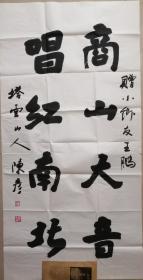 赠小乡友王鹏
商山大音
唱红南北
塔云山人 陈彦